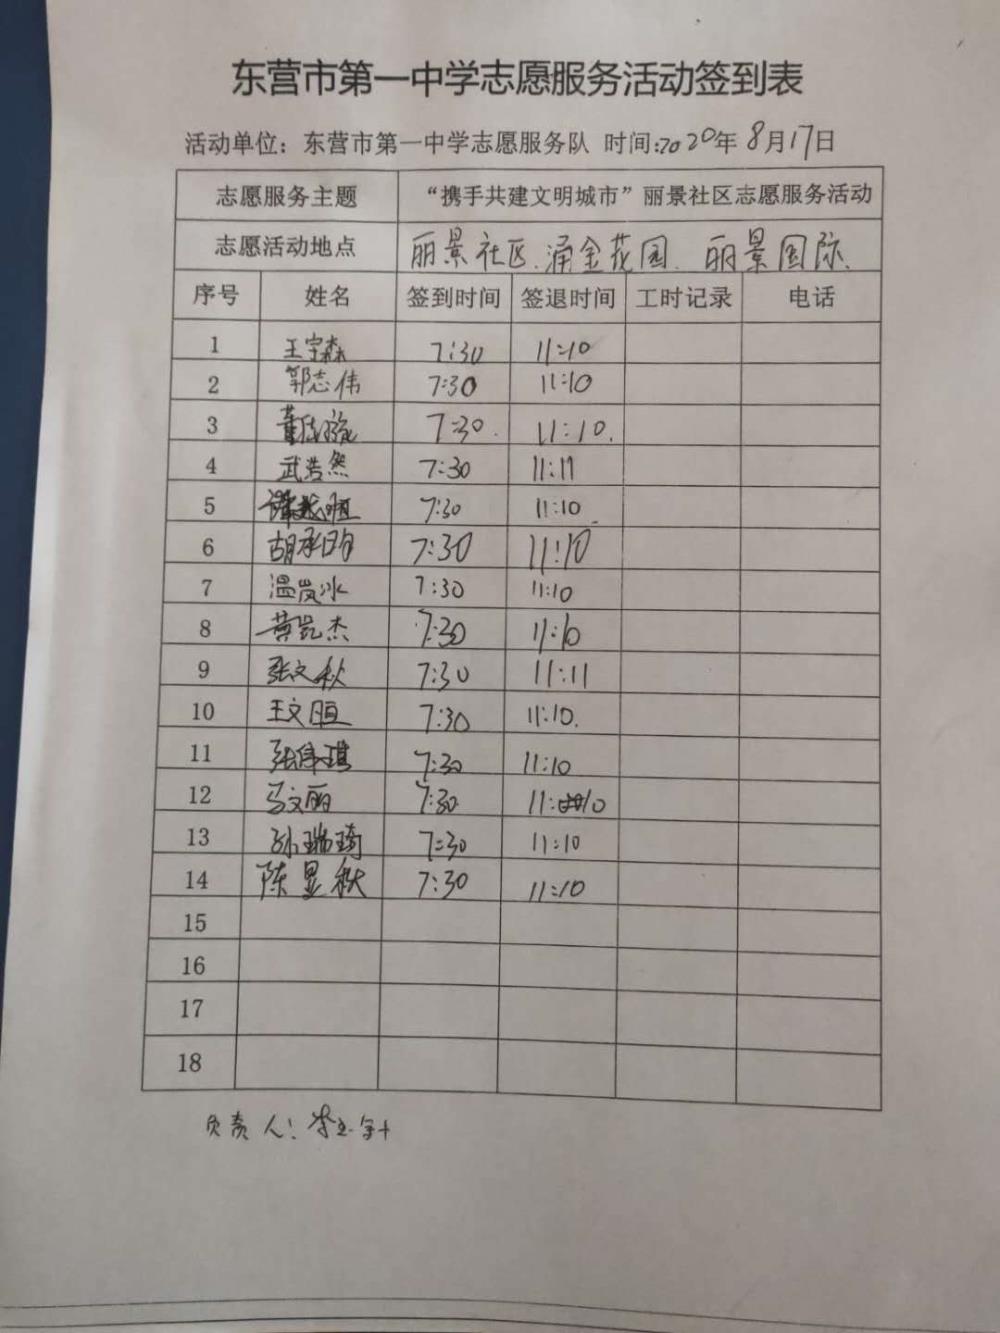 东营市第一中学志愿服务活动签到表
活动单位：东营市第一中学志愿服务队 时间:2020年8月17日
志愿服务主题 “携手共建文明城市”丽景社区志愿服务活动
志愿活动地点 丽景社区、涌金花园、丽景国际.
序号 姓名 签到时间 签退时间 工时记录 电话
1 王宇森 7:30 11:10
2 郭志伟 7:30 11:10
3 董 7:30. 11:10.
4 武浩然 7:30 11:11
5 7:30 11:10
6 胡承昀 7:30 11:10
7 温岚冰 7:30 11:10
8 黄凯杰 7:30 11:10
9 张文秋 7:30 11:11
10 王文暄 7:30 11:10.
11 张伟琪 7:30 11:10
12 马文丽 7:30 11:10
13 孙瑞琦 7:30 11:10
14 陈显秋 7:30 11:10
15
16
17
18
负责人: